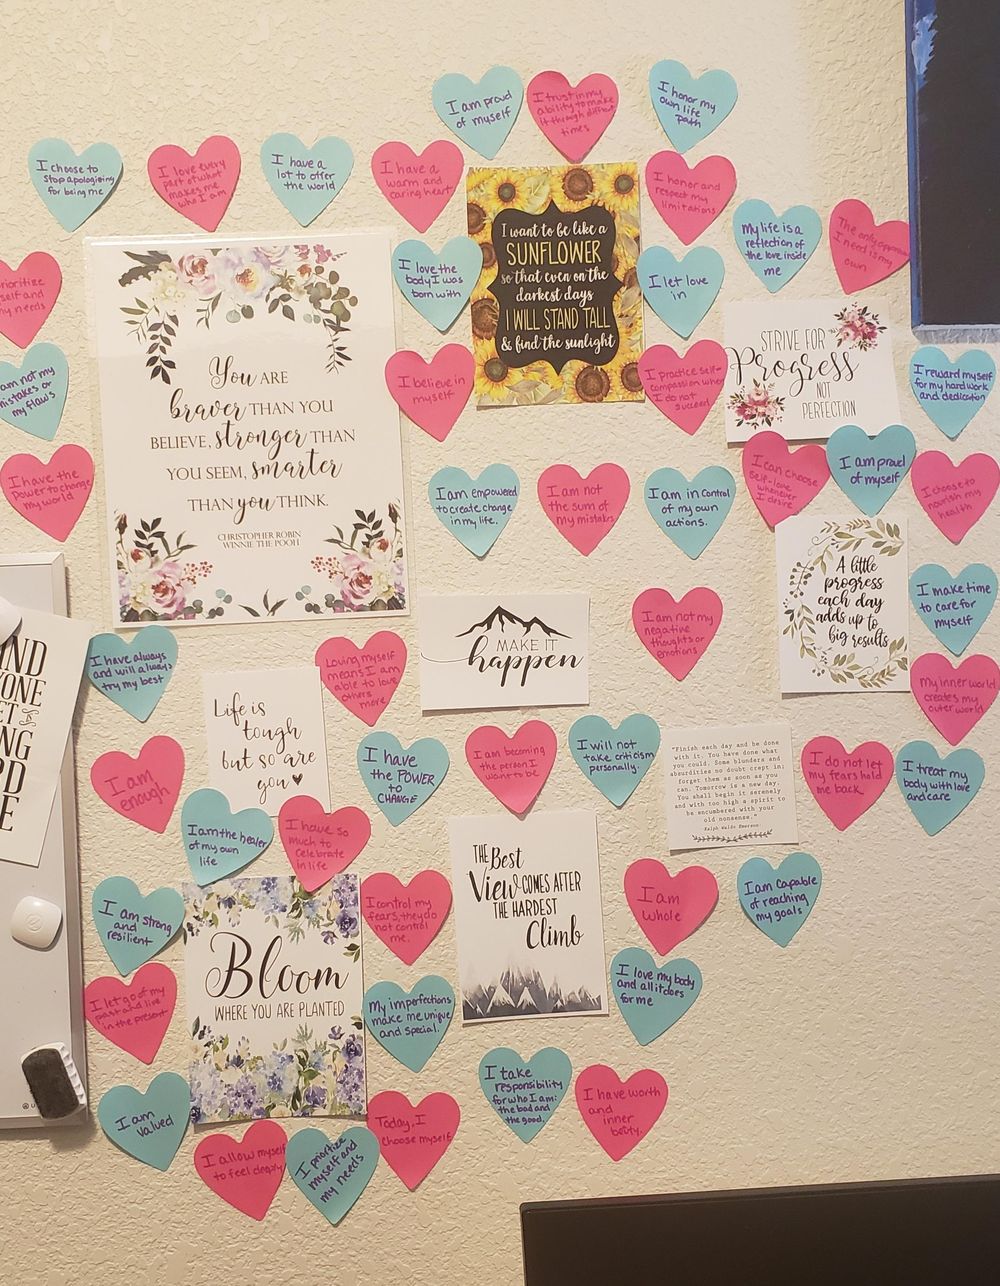 I am proud
of myself
I trust in my
ability to make
it through difficult
times
I honor my
own life
path
I choose to
stop apologizing
for being me
I love every
part of what
makes me
who I am
I have a
lot to offer
the world
I have a
warm and
caring heart
I honor and
respect my
limitations
My life is a
reflection of
the love inside
me
The only
I need is my
own
I want to be like a
SUNFLOWER
so that even on the
darkest days
I WILL STAND TALL
& find the sunlight
and
my needs
I love the
body I was
born with
I let love
in
You ARE
braver THAN YOU
BELIEVE, stronger THAN
YOU SEEM, smarter
THAN you THINK.
CHRISTOPHER ROBIN
WINNIE THE POOH
am not my
mistakes or
my flaws
I believe in
myself
I practice self-
compassion when
I do not
succeed
STRIVE FOR
Progress
NOT
PERFECTION
I reward myself
for my hard work
and dedication
I have the
Power to change
my world
I am empowered
to create change
in my life.
I am not
the sum of
my mistakes
I am in control
of my own
actions.
I can choose
self-love
whenever
I desire
I am proud
of myself
I choose to
nourish my
health
A little
progress
each day
adds up to
big results
I make time
to care for
myself
MAKE IT
happen
I am not my
negative
thoughts or
emotions
I have always
and will always
try my best
Loving myself
means I am
able to love
others
more
My inner world
creates my
outer world
Life is
tough
but so are
you
I am
enough
I have
the POWER
to
CHANGE
I am becoming
the person I
want to be
I will not
take criticism
personally.
"Finish each day and be done
with it. You have done what
you could. Some blunders and
absurdities no doubt crept in;
forget them as soon as you
can. Tomorrow is a new day.
You shall begin it serenely
and with too high a spirit to
be encumbered with your
old nonsense."
Ralph Waldo Emerson
I do not let
my fears hold
me back
I treat my
body with love
and care
I am the healer
of my own
life
I have so
much to
celebrate
in life
THE Best
View COMES AFTER
THE HARDEST
Climb
I am strong
and
resilient
I control my
fears, they do
not control
me.
I am
whole
I am capable
of reaching
my goals
Bloom
WHERE YOU ARE PLANTED
I let go of my
past and live
in the present
My imperfections
make me unique
and special.
I love my body
and all it does
for me
I am
valued
I take
responsibility
for who I am:
the bad and
the good.
I have worth
and
inner
beauty.
I allow myself
to feel deeply
I prioritize
myself and
my needs
Today, I
choose myself